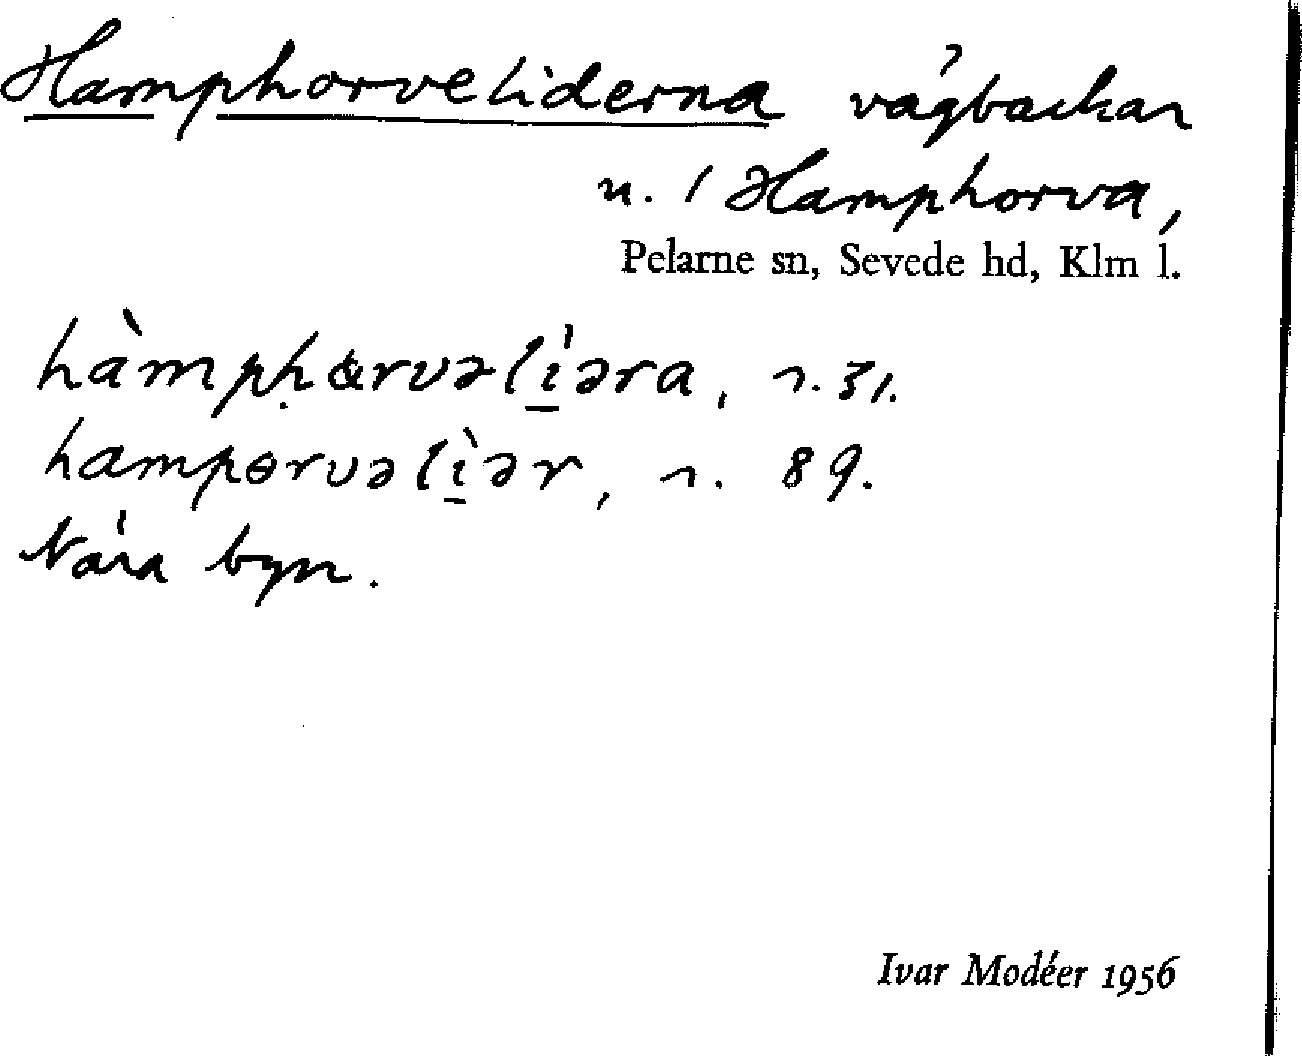 Hamphorveliderna vägbackar
u. / Hamphorva,
Pelarne sn, Sevede hd, Klm l.
hàmpḥɵrvəlì̱əra, s. 31.
hampɵrvəlì̱ər, s. 89.
Nära byn.
Ivar Modéer 1956